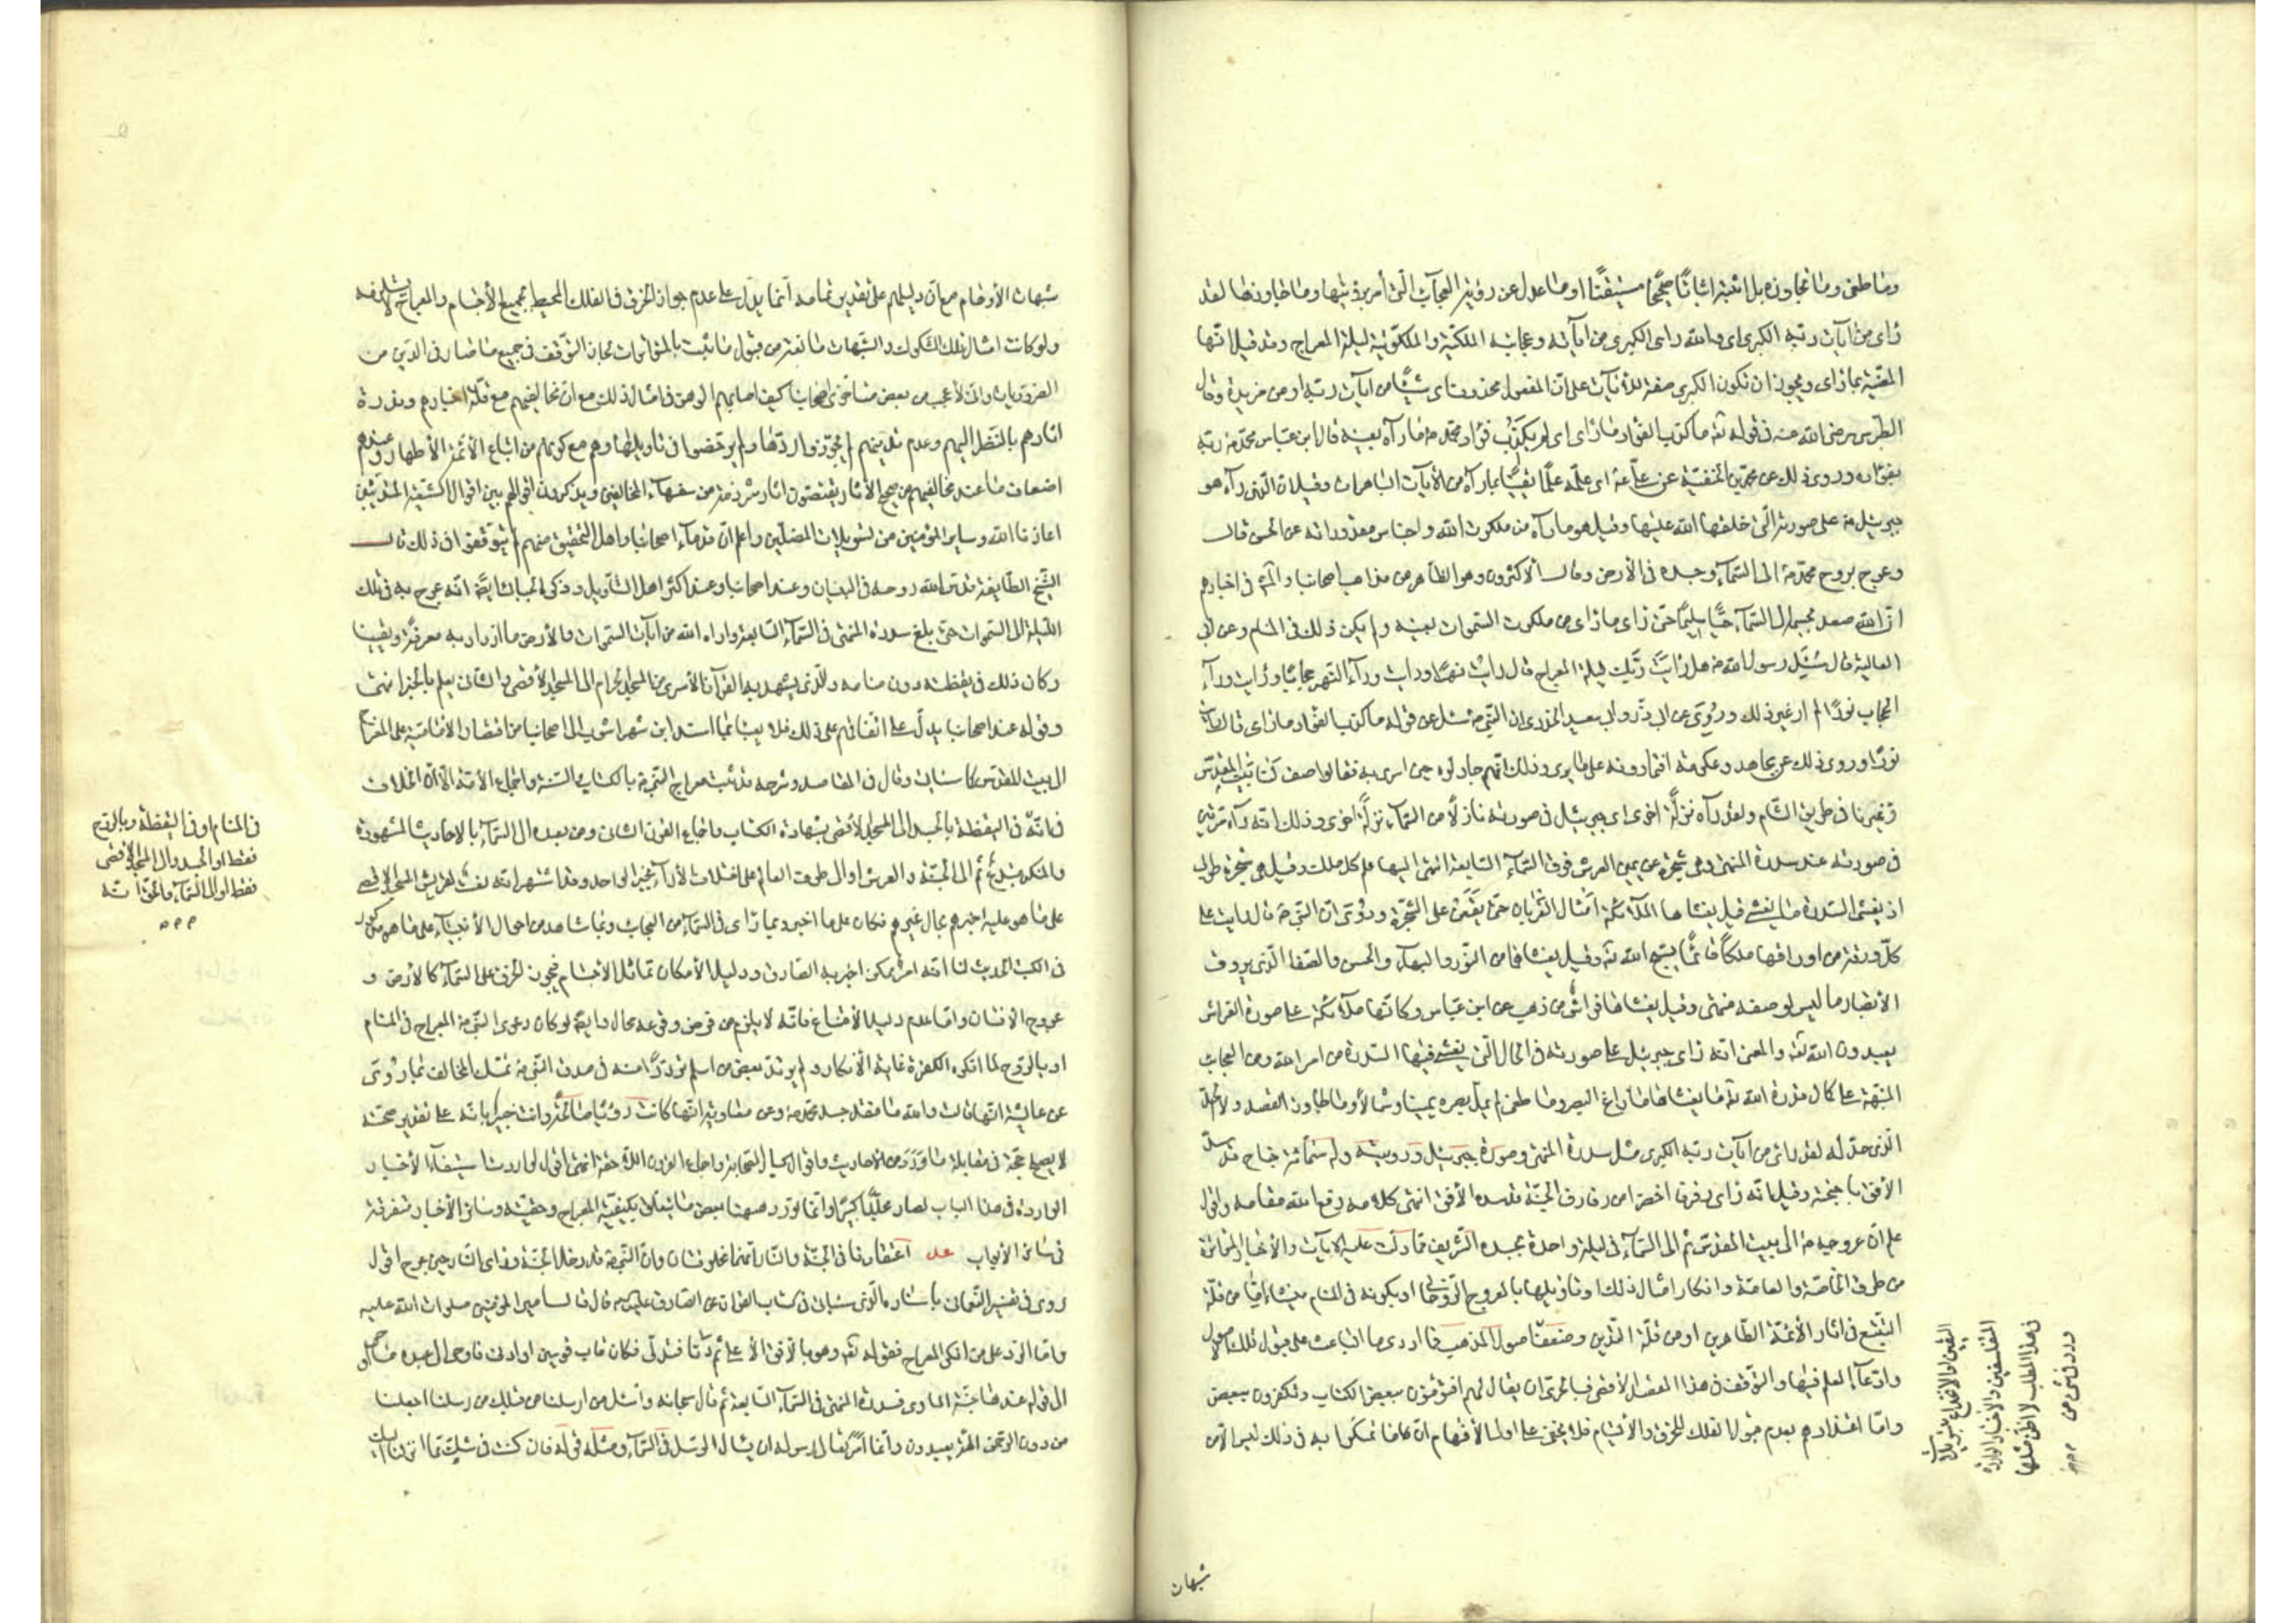 وما طغى وما تجاوزه بل اثبته اثباتًا صحيحًا مستيقنًا او ما عدل عن رؤية العجآئب الّتى أمر برؤيتها وما جاوزها لقد
رأى من آيات ربّه الكبرى اى والله رأى الكبرى من آياته وعجايبه الملكيّة والملكوتيّة ليلة المعراج وقد قيل انّها
المعنيّة بما رأى ويجوز ان تكون الكبرى صفة للآيات على انّ المفعول محذوف اى شيئًا من آيات ربّه او من مزيدة وقال
الطبرسى رضى الله عنه فى قوله تع ما كذب الفؤاد ما رأى اى لم يكذّب فؤاد محمّد ص ما رآه بعينه قال ابن عبّاس محمّد ص ربّه
بفؤاده وروى ذلك عن محمّد بن الحنفيّة عن علىّ ع اى علمه علمًا يقينًا بما رآه من الآيات الباهرات وقيل ان الّذى رآه هو
جبرئيل ع على صورته الّتى خلقها الله عليها وقيل هو ما رآه من ملكوت الله واجناس مقدوراته عن الحسن قال
وعرج بروح محمّد ص الى السّمآء وجسده فى الأرض وقال الأكثرون وهو الظّاهر من مذاهب اصحابنا والمشهور فى اخبارهم
انّ الله صعد بجسمه الى السّمآء حيًّا سليمًا حتّى رأى ما رأى من ملكوت السّموات بعينه ولم يكن ذلك فى المنام وعن ابى
العالية قال سُئِل رسول الله ص هل رأيت ربّك ليلة المعراج قال رأيت نهرًا ورأيت ورآء النّهر حجابًا ورأيت ورآء
الحجاب نورًا لم ار غير ذلك ورُوِى عن ابى ذرّ وابى سعيد الخدرى ان النّبىّ ص سئل عن قوله ما كذب الفؤاد ما رأى قال رأيت
نورًا وروى ذلك عن مجاهد وعكرمة افتمارونه على ما يرى وذلك انّهم جادلوه حين اسرى به فقالوا صف لنا بيت المقدّس
واخبرنا عن عيرنا فى طريق الشّام ولقد رآه نزلةً اخرى اى جبرئيل فى صورته نازلًا من السّمآء نزلةً اخرى وذلك انّه رآه مرّتين
فى صورته عند سدرة المنتهى وهى شجرة عن يمين العرش فوق السّمآء السّابعة انتهى اليها علم كلّ ملك وقيل هى شجرة طوبى
اذ يغشى السّدرة ما يغشى قيل يغشاها الملآئكة امثال الغربان حتّى يقعن على الشّجرة ورُوِى انّ النّبىّ ص قال رأيت على
كلّ ورقة من اوراقها ملكًا قائمًا يسبّح الله تع وقيل يغشاها من النّور والبهآء والحسن والصّفا الّذى يروق
الأبصار ما ليس لوصفه منتهى وقيل يغشاها فراش من ذهب عن ابن عبّاس وكانّها ملآئكة على صورة الفراش
يعبدون الله تع والمعنى انّه رأى جبرئيل على صورته فى الحال الّتى يغشى فيها السّدرة من امر الله ومن العجآئب
المنبّهة على كمال قدرة الله تع ما يغشاها ما زاغ البصر وما طغى لم يمل بصره يمينًا وشمالًا وما طغى اى ما جاوز القصد ولا الحدّ
الّذى حدّ له لقد رأى من آيات ربّه الكبرى مثل سدرة المنتهى وصورة جبرئيل ع ورؤيته وله ستّمائة جناح قد سدّ
الأفق باجنحته وقيل انّه رأى رفرفًا اخضر من رفارف الجنّة قد سدّ الأفق انتهى كلامه رفع الله مقامه واقول
علم انّ عروجه ص الى بيت المقدّس ثم الى السّمآء فى ليلة واحدة بجسده الشّريف ممّا دلّت عليه الآيات والأخبار المتواترة
من طرق الخاصّة والعامّة وانكار امثال ذلك او تأويلها بالعروج الرّوحانى او بكونه فى المنام ينشأ امّا من قلّة
التتبّع فى آثار الأئمّة الطّاهرين او من قلّة التّدين وضعف
اليقين او الانخداع بتسويلات
المتفلسفين والأخبار الواردة
فى هذا المطلب لا اظنّ مثلها
ورد فى شىء من
اصول المذهب فما ادرى ما الباعث على قبول تلك الأصول
وادّعآء العلم فيها والتوقّف فى هذا المقصد الأقصى فبالحرىّ ان يقال لهم افتؤمنون ببعض الكتاب وتكفرون ببعض
وامّا اعتذارهم بعدم قبول الفلك للخرق والإلتيام فلا يخفى على اولى الأفهام انّ ما تمسّكوا به فى ذلك ليس الّا من
شبهات
شبهات الأوهام مع انّ دليلهم على تقدير تمامه انّما يدلّ على عدم جواز الخرق فى الفلك المحيط بجميع الأجسام والمعراج لا يستلزمه
ولو كانت امثال تلك الشّكوك والشّبهات مانعة من قبول ما ثبت بالمتواترات لجاز التوقّف فى جميع ما صار فى الدّين من
الضروريات وانّى لأعجب من بعض متأخرى اصحابنا كيف اصابهم الوهن فى امثال ذلك مع انّ مخالفيهم مع قلّة اخبارهم وندرة
آثارهم بالنّظر اليهم وعدم تديّنهم لم يجوّزوا ردّها ولم يرخّصوا فى تأويلها وهم مع كونهم من اتباع الأئمّة الأطهار وعندهم
اضعاف ما عند مخالفيهم من صحيح الآثار يقتصّون آثار شرذمة من سفهآء المخالفين ويذكرون اقوالهم بين اقوال الشّيعة المتديّنين
اعاذنا الله وساير المؤمنين من تسويلات المضلّين واعلم انّ قدمآء اصحابنا واهل التّحقيق منهم لم يتوقّفوا فى ذلك قال
شيخ الطّايفة قدّس الله روحه فى التبيان وعند اصحابنا وعند اكثر اهل التّأويل وذكره الجبائى ايضًا انّه عرج به فى تلك
اللّيلة الى السّموات حتّى بلغ سدرة المنتهى فى السّمآء السّابعة واراه الله من آيات السّموات والأرض ما ازداد به معرفةً ويقينا
وكان ذلك فى يقظته دون منامه والّذى يشهد به القرآن الأسرى من المسجد الحرام الى المسجد الأقصى والثانى يعلم بالخبر انتهى
وقوله عند اصحابنا يدلّ على اتّفاقهم على ذلك
البيت المقدّس كما سيأتى وقال فى المقاصد وشرحه قد ثبت معراج النّبىّ ص بالكتاب والسّنّة واجماع الأمّة الّا انّ الخلاف
فى انّه
فى المنام او فى اليقظة وبالرّوح
فقط او الجسد والى المسجد الأقصى
فقط او الى السّمآء والحقّ انّه
فى اليقظة بالجسد الى المسجد الأقصى بشهادة الكتاب واجماع القرن الثانى ومن بعده الى السّمآء بالاحاديث المشهورة
والمنكر مبتدع ثم الى الجنّة والعرش او الى طرف العالم على اختلاف الآرآء بخبر الواحد وقد اشتهر انّه نعت لقريش المسجد الاقصى
على ما هو عليه واخبرهم بحال عيرهم فكان على ما اخبر وبما رأى فى السّمآء من العجائب وبما شاهد من احوال الأنبيآء على ما هو مذكور
فى الكتب الحديث لنا انّه امر ممكن اخبر به الصّادق ودليل الأمكان تماثل الأجسام فيجوز الخرق على السّمآء كالأرض و
عروج الانسان وامّا عدم دليل الأمتناع فانّه لا يلزم من فرض وقوعه محال وايضًا لو كان دعوى النّبىّ ص المعراج فى المنام
او بالرّوح لما انكره الكفرة غاية الأنكار ولم يرتدّ بعض من اسلم تردّدًا منه فى صدق النّبىّ ص تمسّك المخالف بما رُوِى
عن عائشة انّها قالت والله ما فقد جسد محمّد ص وعن معاوية انّها كانت رؤيًا صالحة وانت خبير بانّه على تقدير صحّته
لا يصلح حجّة فى مقابلة ما ورد من الأحاديث واقوال كبار الصّحابة واجماع القرون اللّاحقة انتهى اقول لو اردت استيفآء الأخبار
الواردة فى هذا الباب لصار مجلّدًا كبيرًا وانّما نورد هيهنا بعض ما يتعلّق بكيفيّة المعراج وحقيّته وسائر الأخبار متفرقة
فى سائر الأبواب عد اعتقادنا فى الجنّة والنّار انّهما مخلوقتان وانّ النّبىّ ص قد دخل الجنّة ورأى النّار حين عرج اقول
روى فى تفسير النّعمانى باسناده الّذى سيأتى فى كتاب القرآن عن الصّادق عليه السلام قال قال امير المؤمنين صلوات الله عليه
وامّا الردّ على من انكر المعراج فقوله تع وهو بالأفق الأعلى ثم دنا فتدلّى فكان قاب قوسين او ادنى فاوحى الى عبده ما اوحى
الى قوله عندها جنّة المأوى فسدرة المنتهى فى السّمآء السّابعة ثم قال سبحانه واسئل من ارسلنا من قبلك من رسلنا اجعلنا
من دون الرّحمن آلهة يعبدون وانّما امر تعالى رسوله ان يسأل الرّسل فى السّمآء ومثله قوله فان كنت فى شكّ ممّا انزلنا اليك